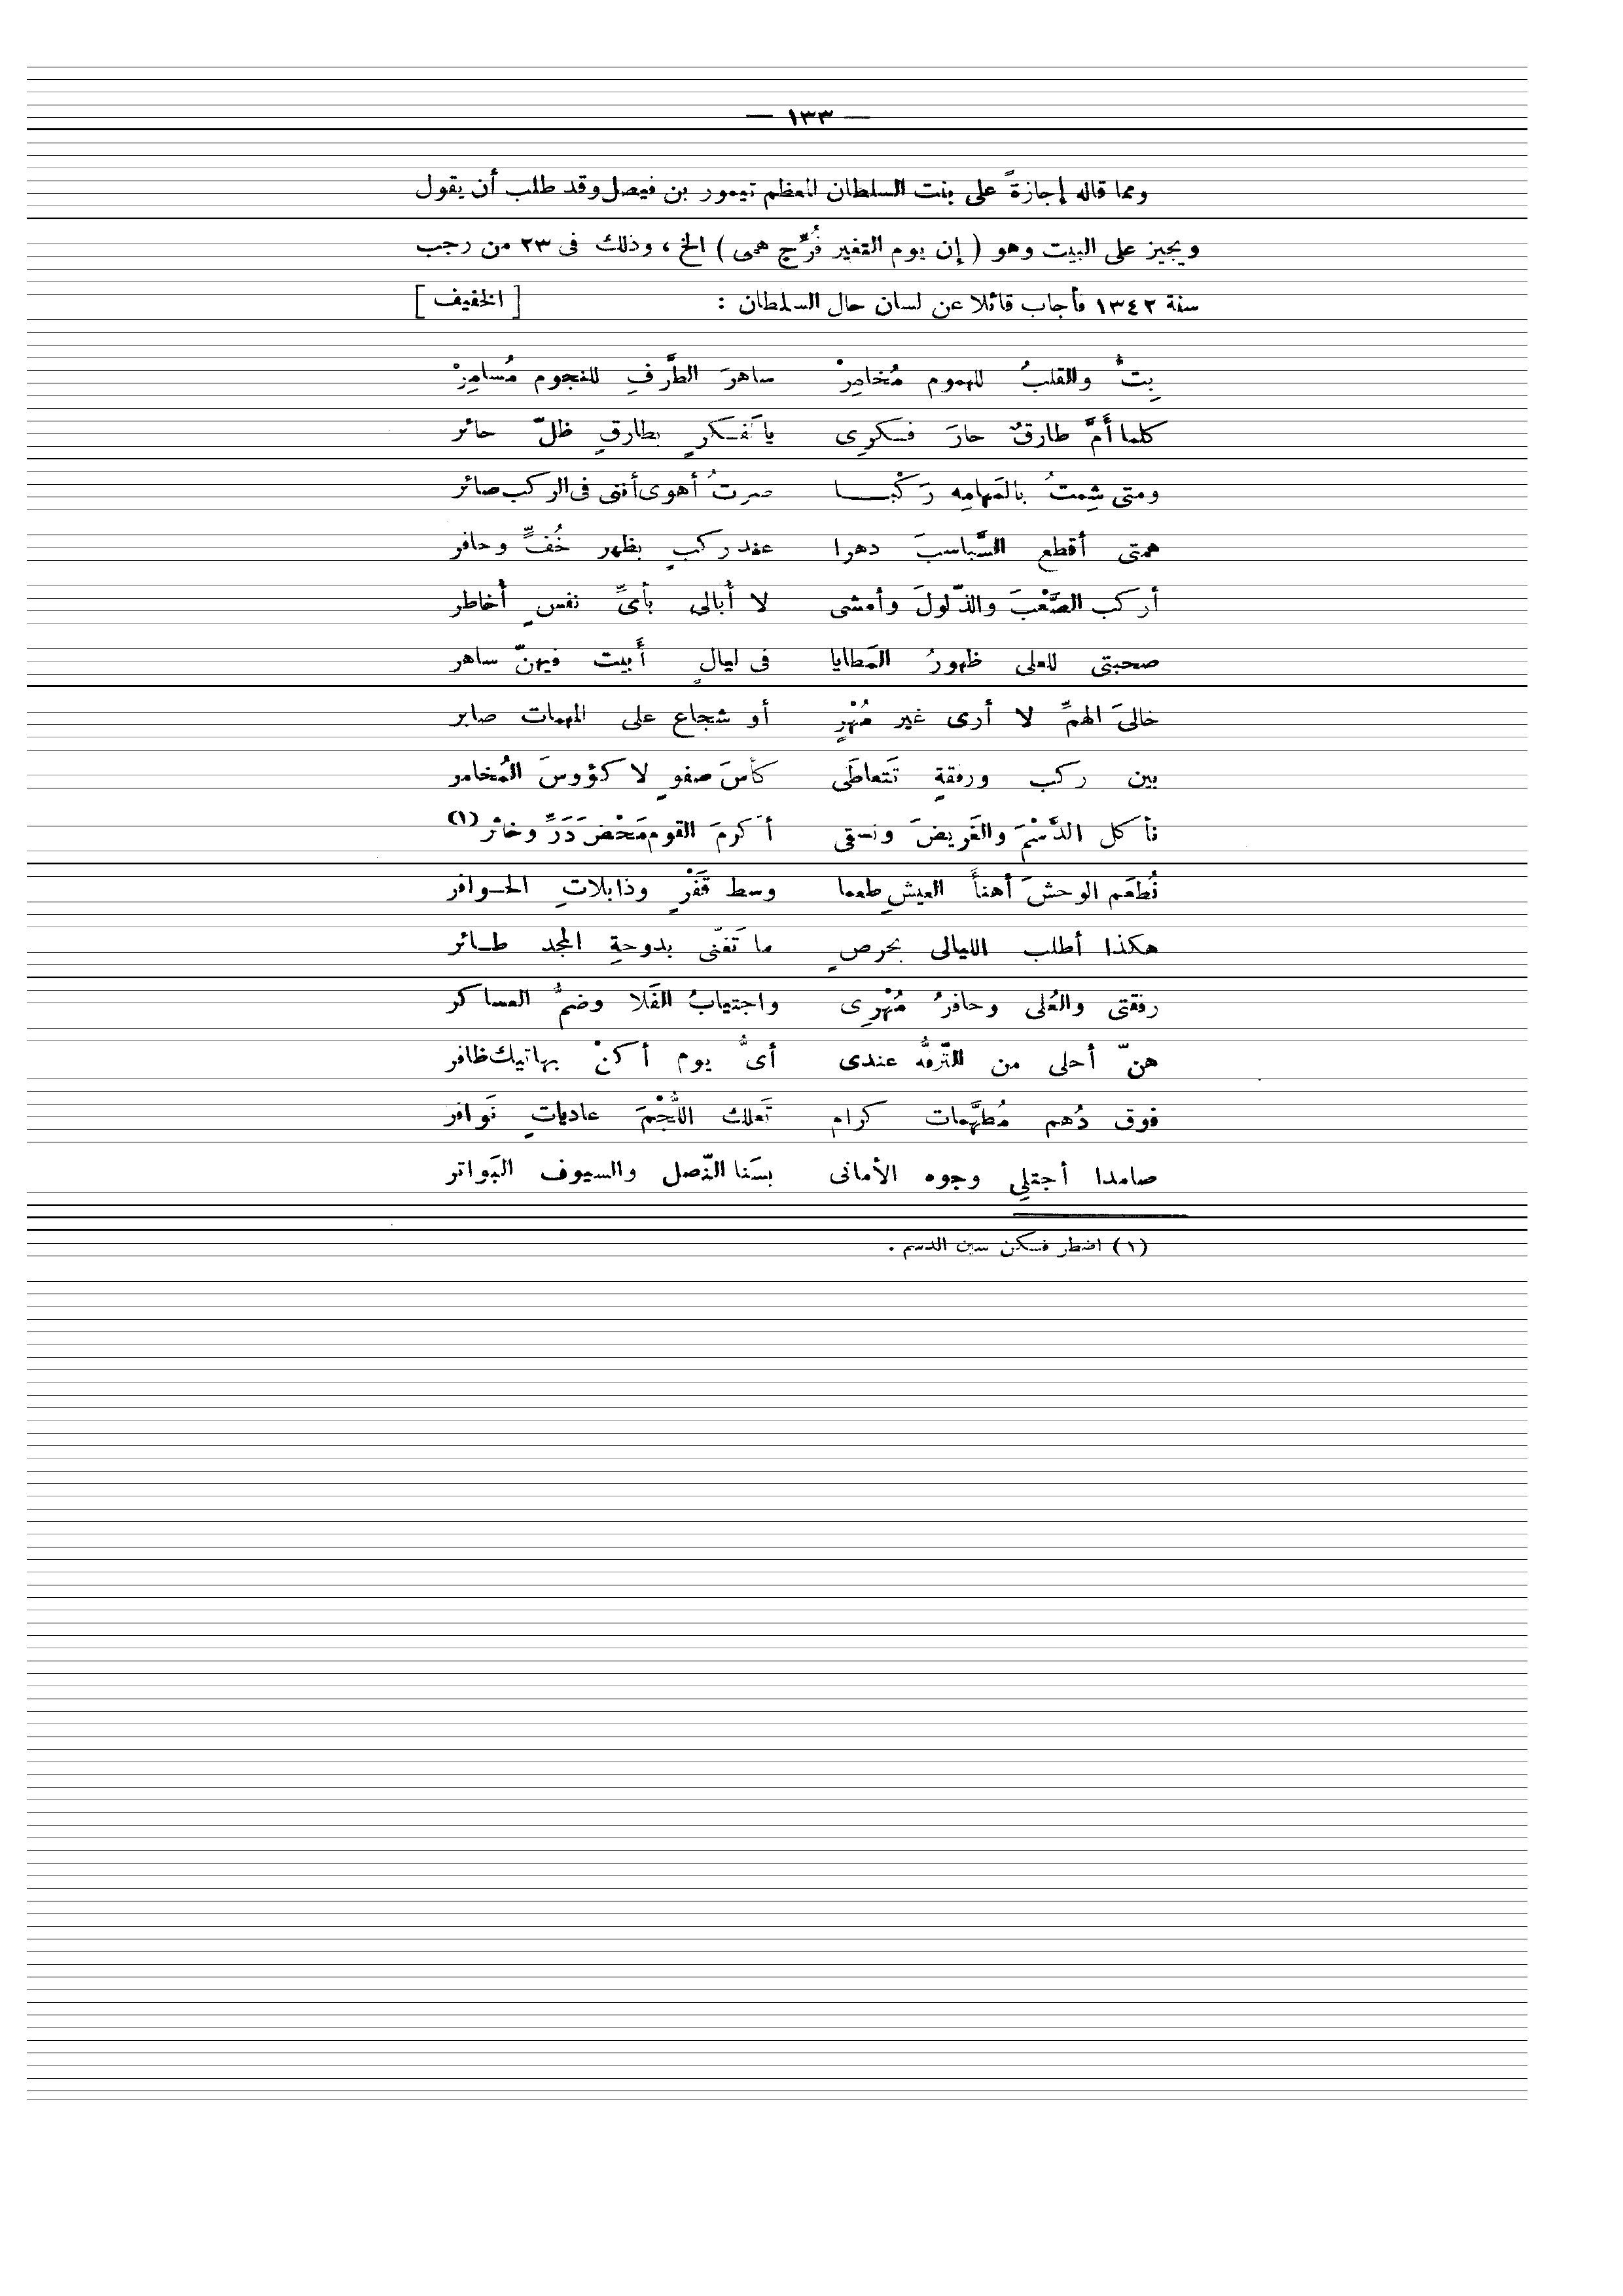 — ١٣٣ —
ومما قاله إجازةً على بيت السلطان المعظم تيمور بن فيصل وقد طلب أن يقول
ويجيز على البيت وهو ( إن يوم التغير فُرّج همى ) الخ ، وذلك فى ٢٣ من رجب
سنة ١٣٤٢ فأجاب قائلا عن لسان حال السلطان : [ الخفيف ]
بِتُّ والقلبُ للهموم مُخامِرْ ساهرَ الطَّرفِ للنجوم مُسامِرْ
كلما أَمَّ طارقٌ حارَ فكرِى يا لَفكرٍ بطارقٍ ظلّ حائر
ومتى شِمتُ بالمَهامِه رَكْبا صرتُ أهوى أننى فى الركب صائر
همتى أقطع السَّباسبَ دهرا عند ركبٍ بظهر خُفٍّ وحافر
أركب الصَّعْبَ والذّلولَ وأمشى لا أُبالى بأىِّ نفسٍ أخاطر
صحبتى للعلى ظهورُ المَطايا فى ليالٍ أَبيت فيهنّ ساهر
خالىَ الهمِّ لا أرى غير مُهْرٍ أو شجاع على المهمات صابر
بين ركب ورفقةٍ تَتعاطَى كأسَ صفوٍ لا كؤوسَ المُخامر
نأكل الدَّسْمَ والغَريضَ ونسقى أكرمَ القوم مَحْضَ دَرٍّ وخائر (١)
نُطعَم الوحشَ أهنأَ العيشِ طعما وسط قَفْرٍ وذابلاتِ الحوافر
هكذا أطلب الليالى بحرصٍ ما تَغنّى بدوحةِ المجد طائر
رفقتى والعُلى وحافرُ مُهْرِى واجتيابُ الفَلا وضمُّ العساكر
هنّ أحلى من التَّرفُّه عندى أىُّ يوم أكنْ بهاتيك ظافر
فوق دُهم مُطهَّمات كرام تَعلك اللُّجْمَ عادياتٍ نَوافر
صامدا أجتلِى وجوه الأمانى بسَنا النّصل والسيوف البَواتر
(١) اضطر فسكن سين الدسم .